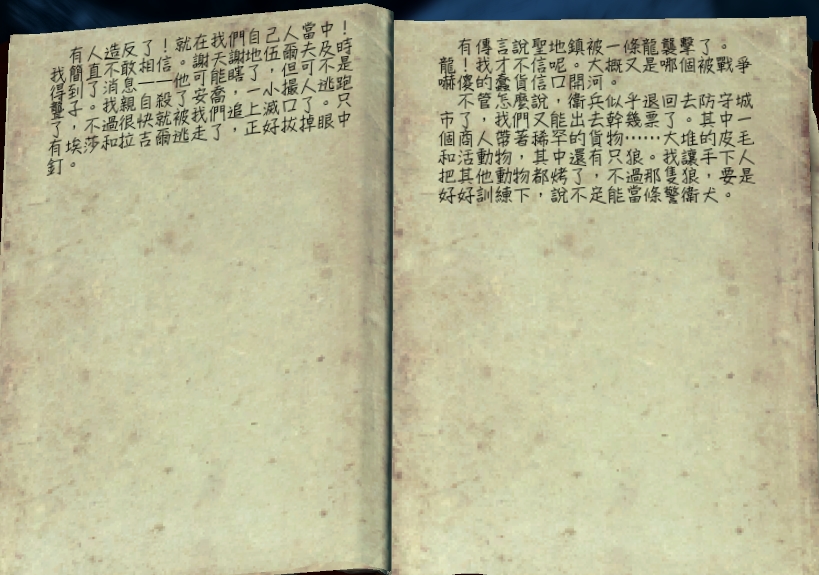 有人造反了！就在我們自己人當中！
我簡直不敢相信。謝天謝地伍夫爾及時
得到了消息——他可能瞎了，但可不是
聾子。我親自殺了安喬，一小撮人逃跑
了，不過很快就被我們追上滅口了。只
有埃莎和拉吉爾逃走了，正好拔掉眼中
釘。
有傳言說聖地鎮被一條龍襲擊了。
龍！我才不信呢。大概又是哪個被戰爭
嚇傻的蠢貨信口開河。
不管怎麼說，衛兵似乎退回去防守城
市了，我們又能出去幹幾票了。其中一
個商人帶著稀罕的貨物……大堆的皮毛
和活動物，其中還有只狼。我讓手下人
把其他動物都烤了，不過那隻狼，要是
好好訓練下，說不定能當條警衛犬。